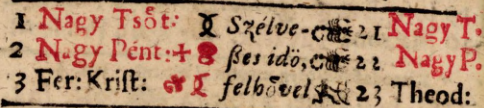 1 Nagy Tsőt: Szélve- 21 Nagy T.
2 Nagy Pént: + ßes idö, 22 Nagy P.
3 Fer: Kriſt: felhővel 23 Theod: